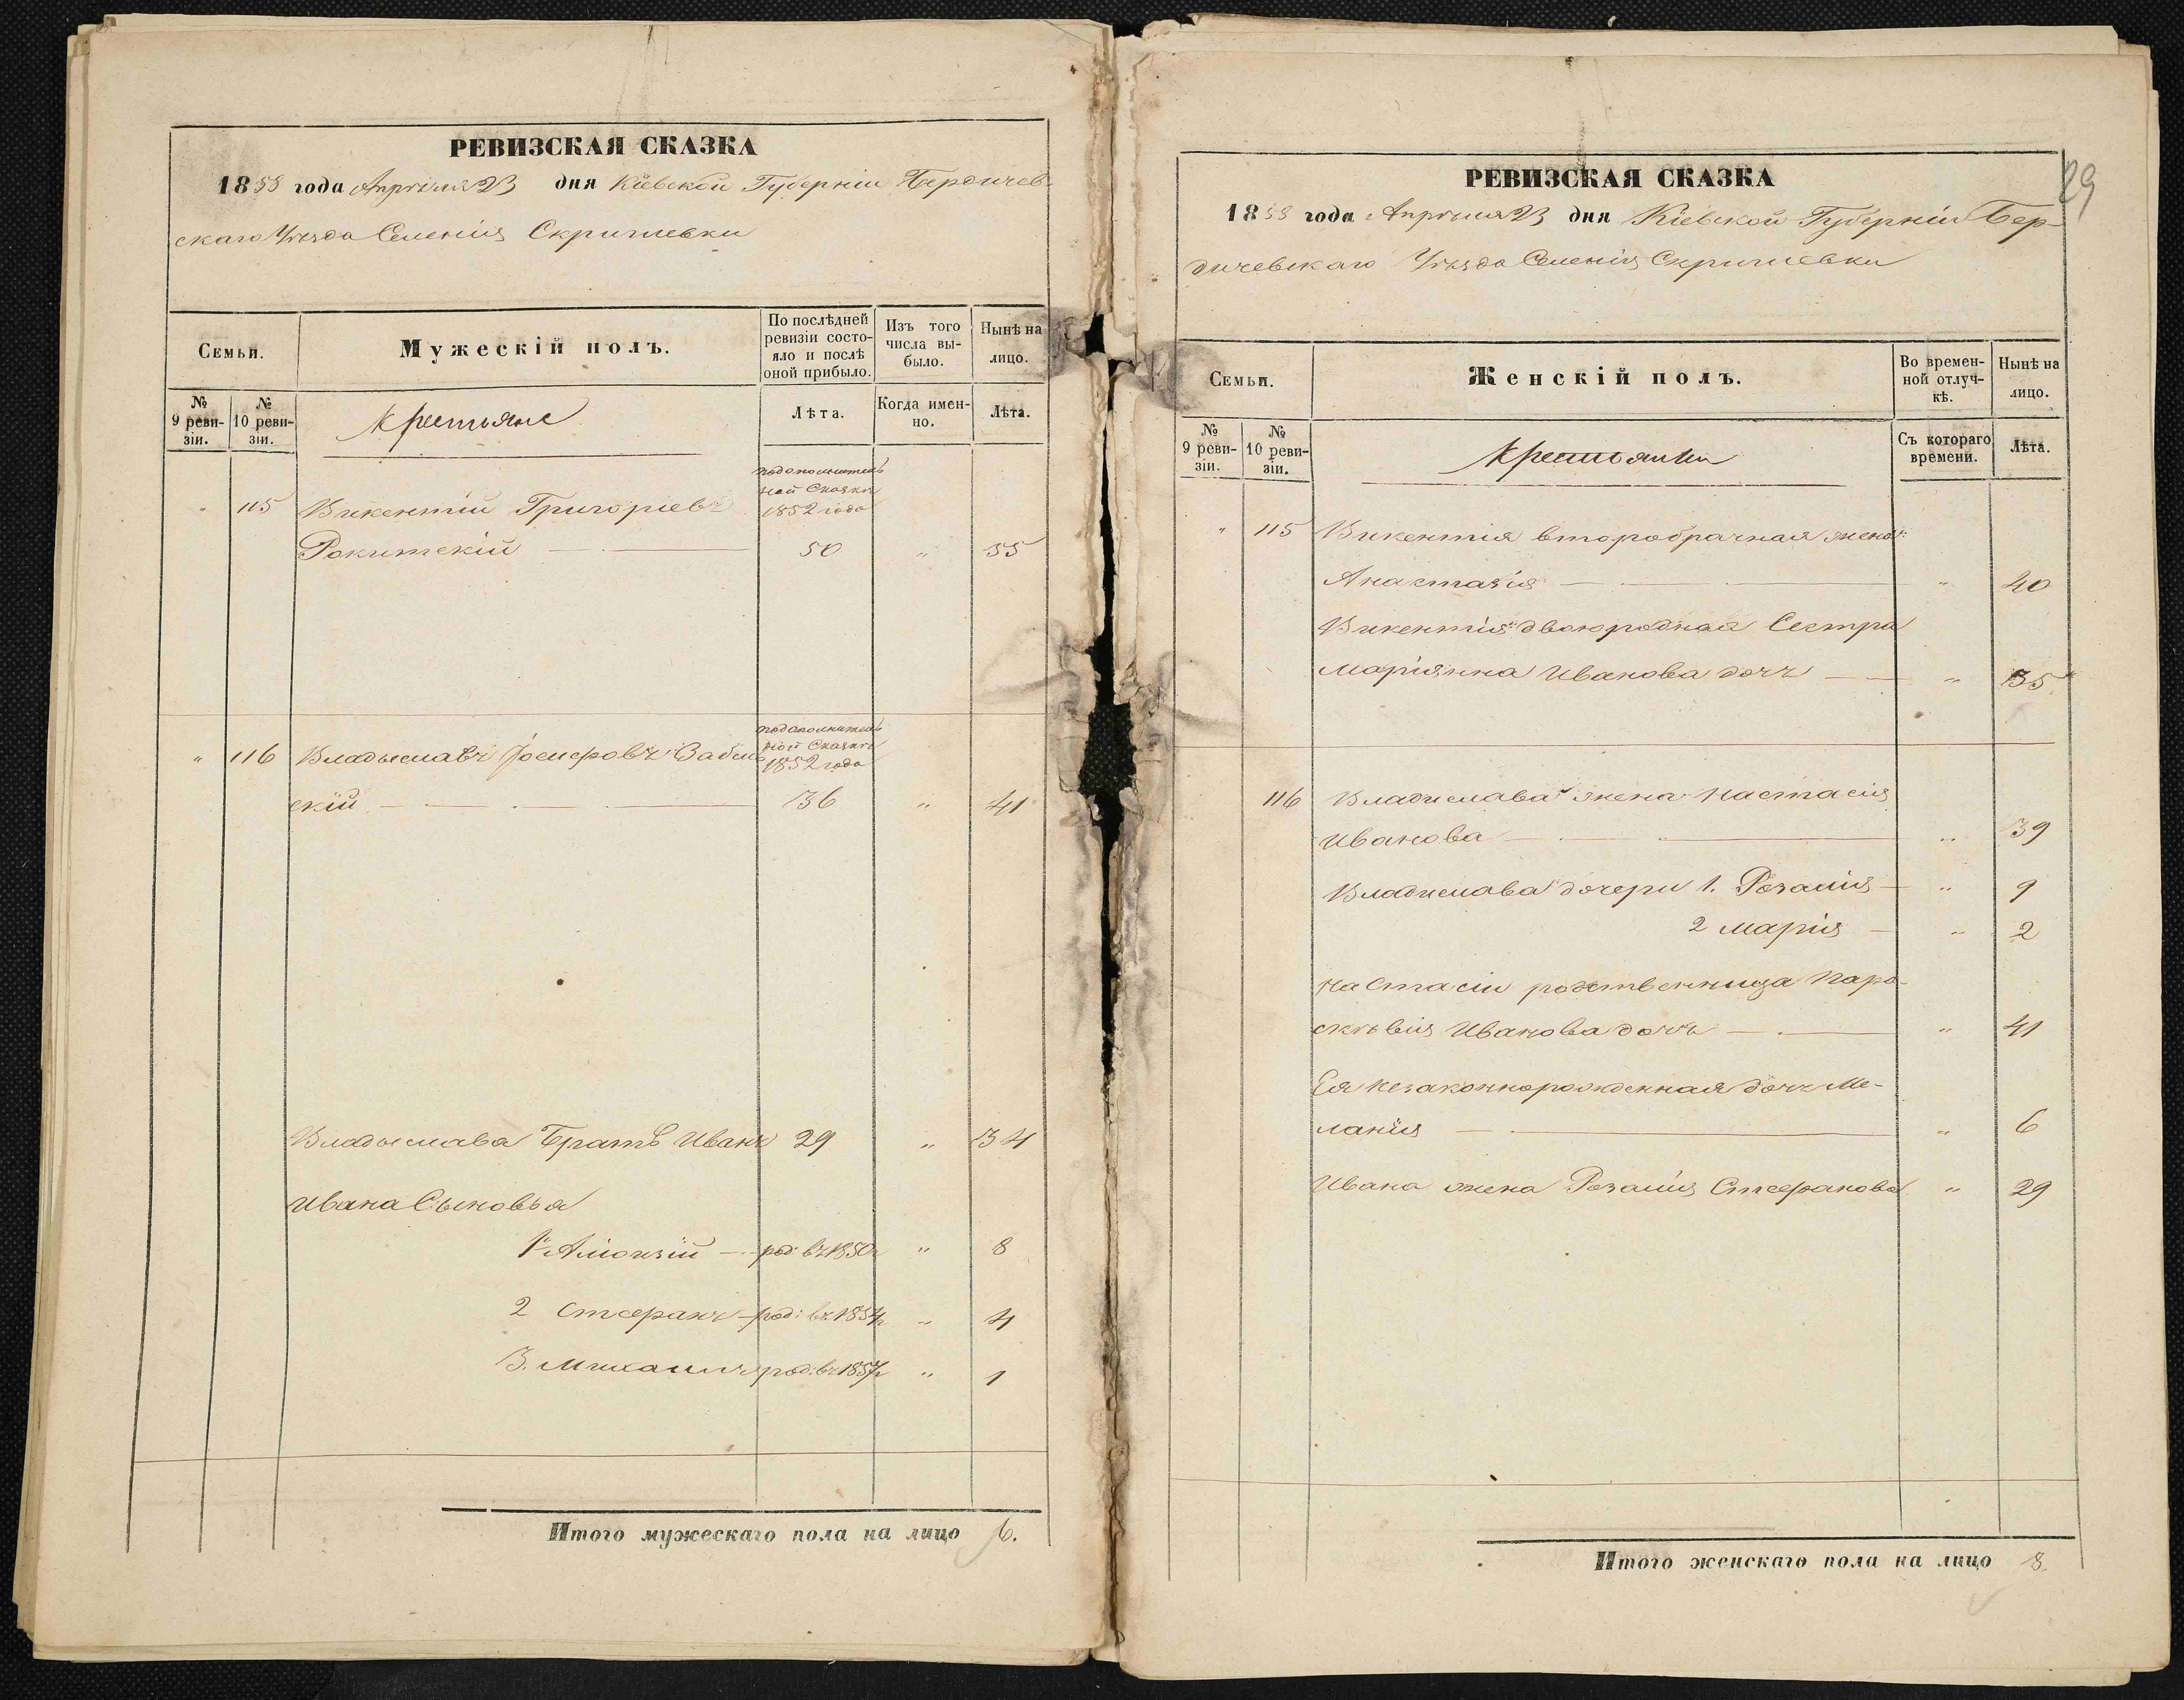 РЕВИЗСКАЯ СКАЗКА
1858 года Апрѣля 23 дня Кіевской Губерніи Бердичев-
скаго Уѣзда Селенія Скригилевки
Семьи.
Мужескій полъ.
По послѣдней ревизіи состо-
яло и послѣ оной прибыло.
Изъ того числа вы-
было.
Нынѣ на лицо.
№ 9 реви-
зіи.
№ 10 реви-
зіи.
Крестьяне
Лѣта.
Когда имен-
но.
Лѣта.
по дополнитель
ной Сказкѣ
„ 115 Викентій Григоріевъ 1852 года
Рокитскій 50 „ 55
по дополнитель
ной Сказкѣ
„ 116 Владыславъ Іосифовъ 1852 года
скій 36 „ 41
Владыслава Братъ Иванъ 29 „ 34
Ивана Сыновья
1й Алоизій род: въ 1850 „ 8
2 Стефанъ род: въ 1854 „ 4
3. Михаилъ род: въ 1857 „ 1
Итого мужескаго пола на лицо 6.
29
РЕВИЗСКАЯ СКАЗКА
1858 года Апрѣля 23 дня Кіевской Губерніи Бер-
дичевскаго Уѣзда Селенія Скригилевки
Семьи.
Женскій полъ.
Во времен-
ной отлуч-
кѣ.
Нынѣ на лицо.
№ 9 реви-
зіи.
№ 10 реви-
зіи.
Крестьянки
Съ котораго времени.
Лѣта.
„ 115 Викентія второбрачная жена
Анастазія „ 40
Викентія двоюродная Сестра
Маріянна Иванова дочь „ 35
116 Владислава жена Настасія
Иванова „ 39
Владислава дочери 1. Розалія „ 9
2 Марія „ 2
Настасіи родственница Пара-
скѣвія Иванова дочь „ 41
Ея незаконнорожденная дочь Ме-
ланія „ 6
Ивана жена Розалія Стефанова „ 29
Итого женскаго пола на лицо 8.